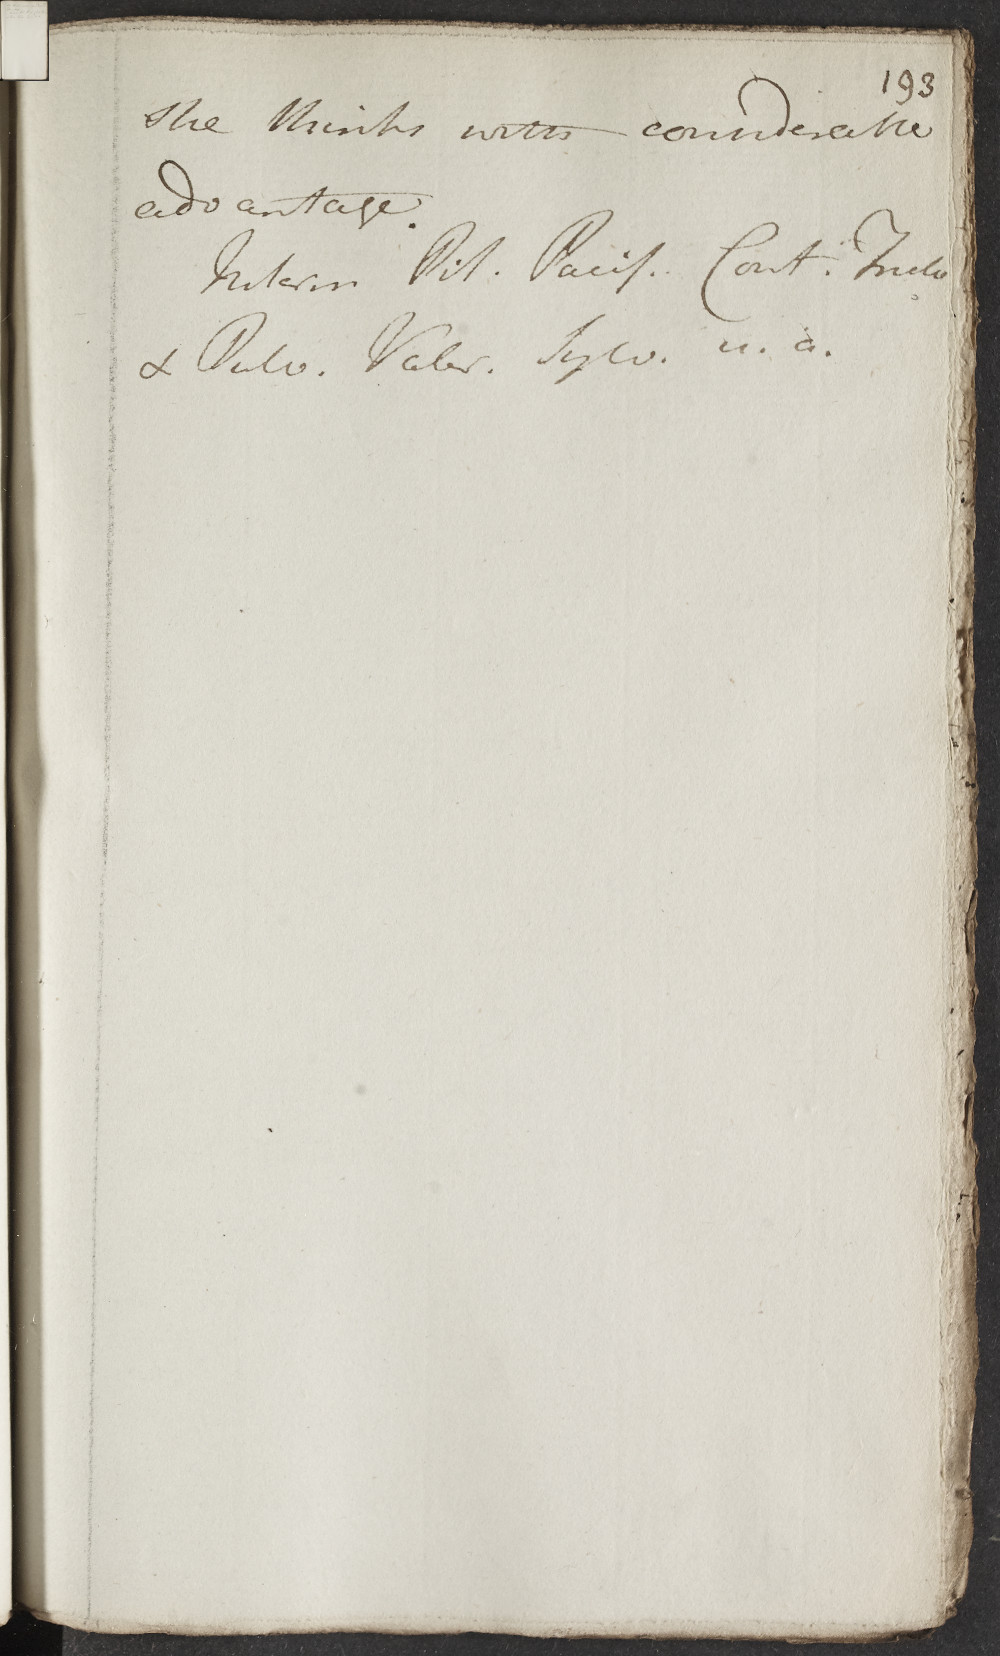 193
she thinks with considerable
advantage.
Interim Pil. Pacif. Cont. Tinct.
& Pulv. Valer. Sylv. u. a.